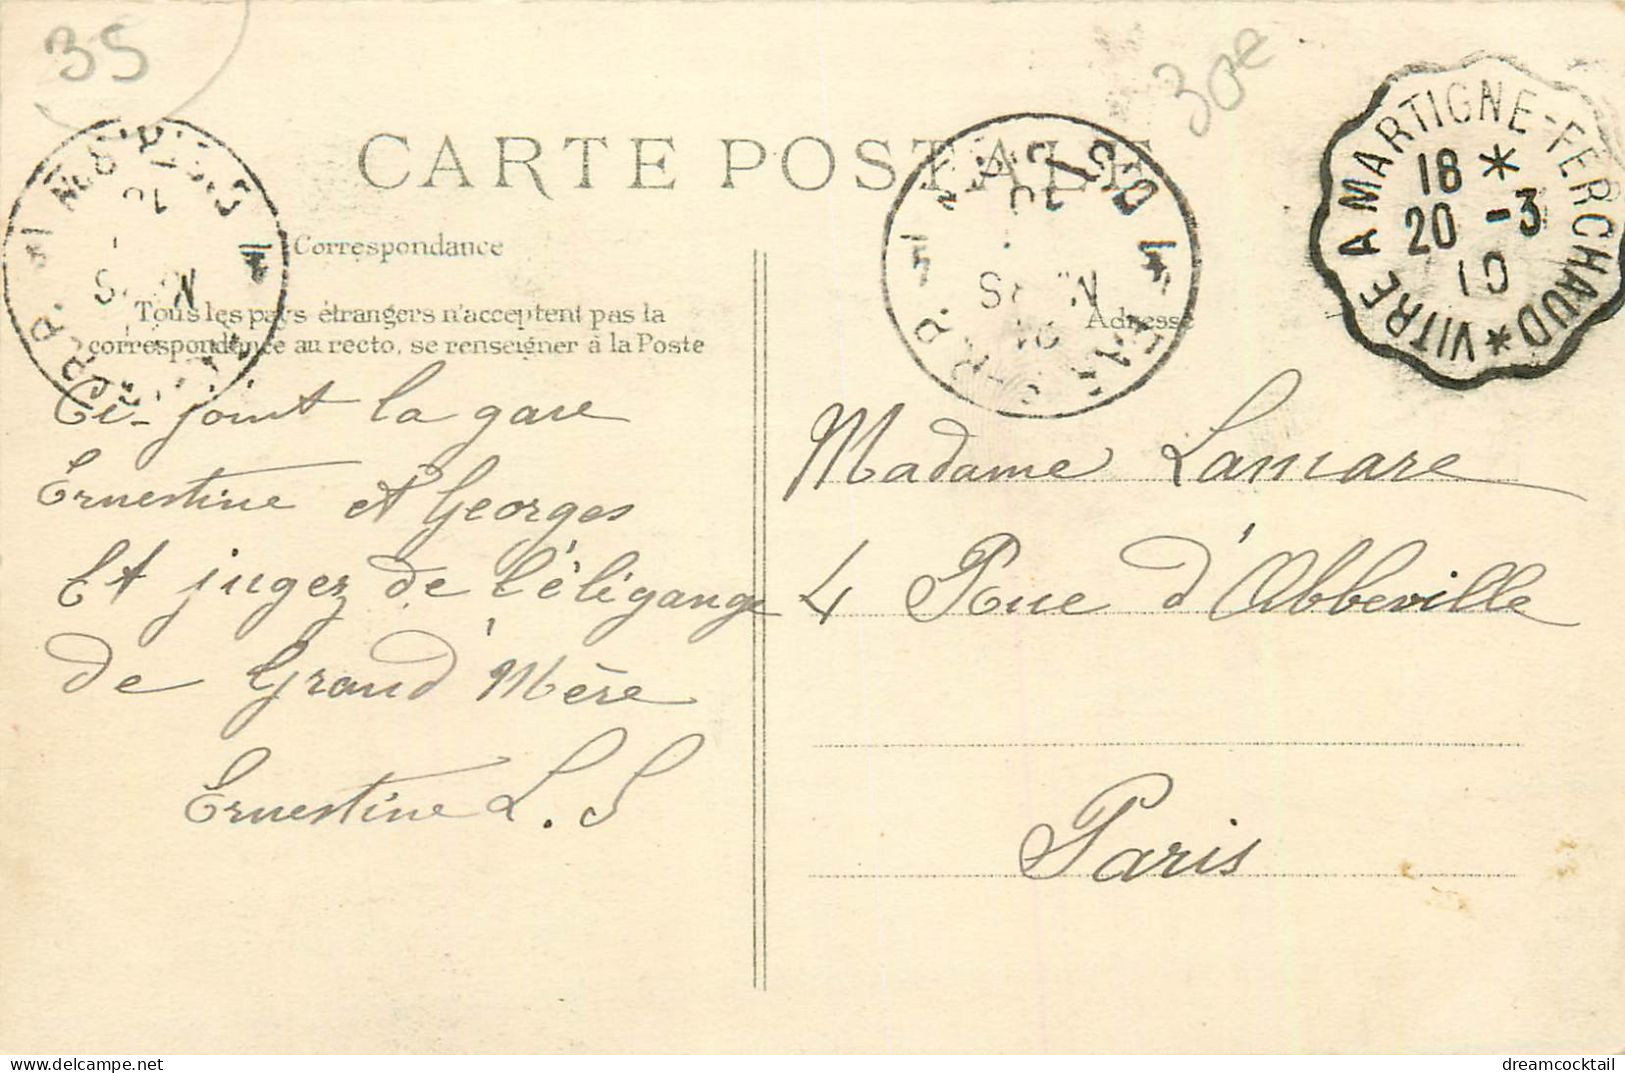 35
30e
CARTE POSTALE
VITRE A MARTIGNE-FERCHAUD *
18 *
20 -3
10
Correspondance
Tous les pays étrangers n'acceptent pas la
correspondance au recto, se renseigner à la Poste
Adresse
Ci-joint la gare
Ernestine et Georges
Et jugez de l'éligange
de Grand'Mère
Ernestine L. S
Madame Lamare
4 Rue d'Abbeville
Paris
dreamcocktail